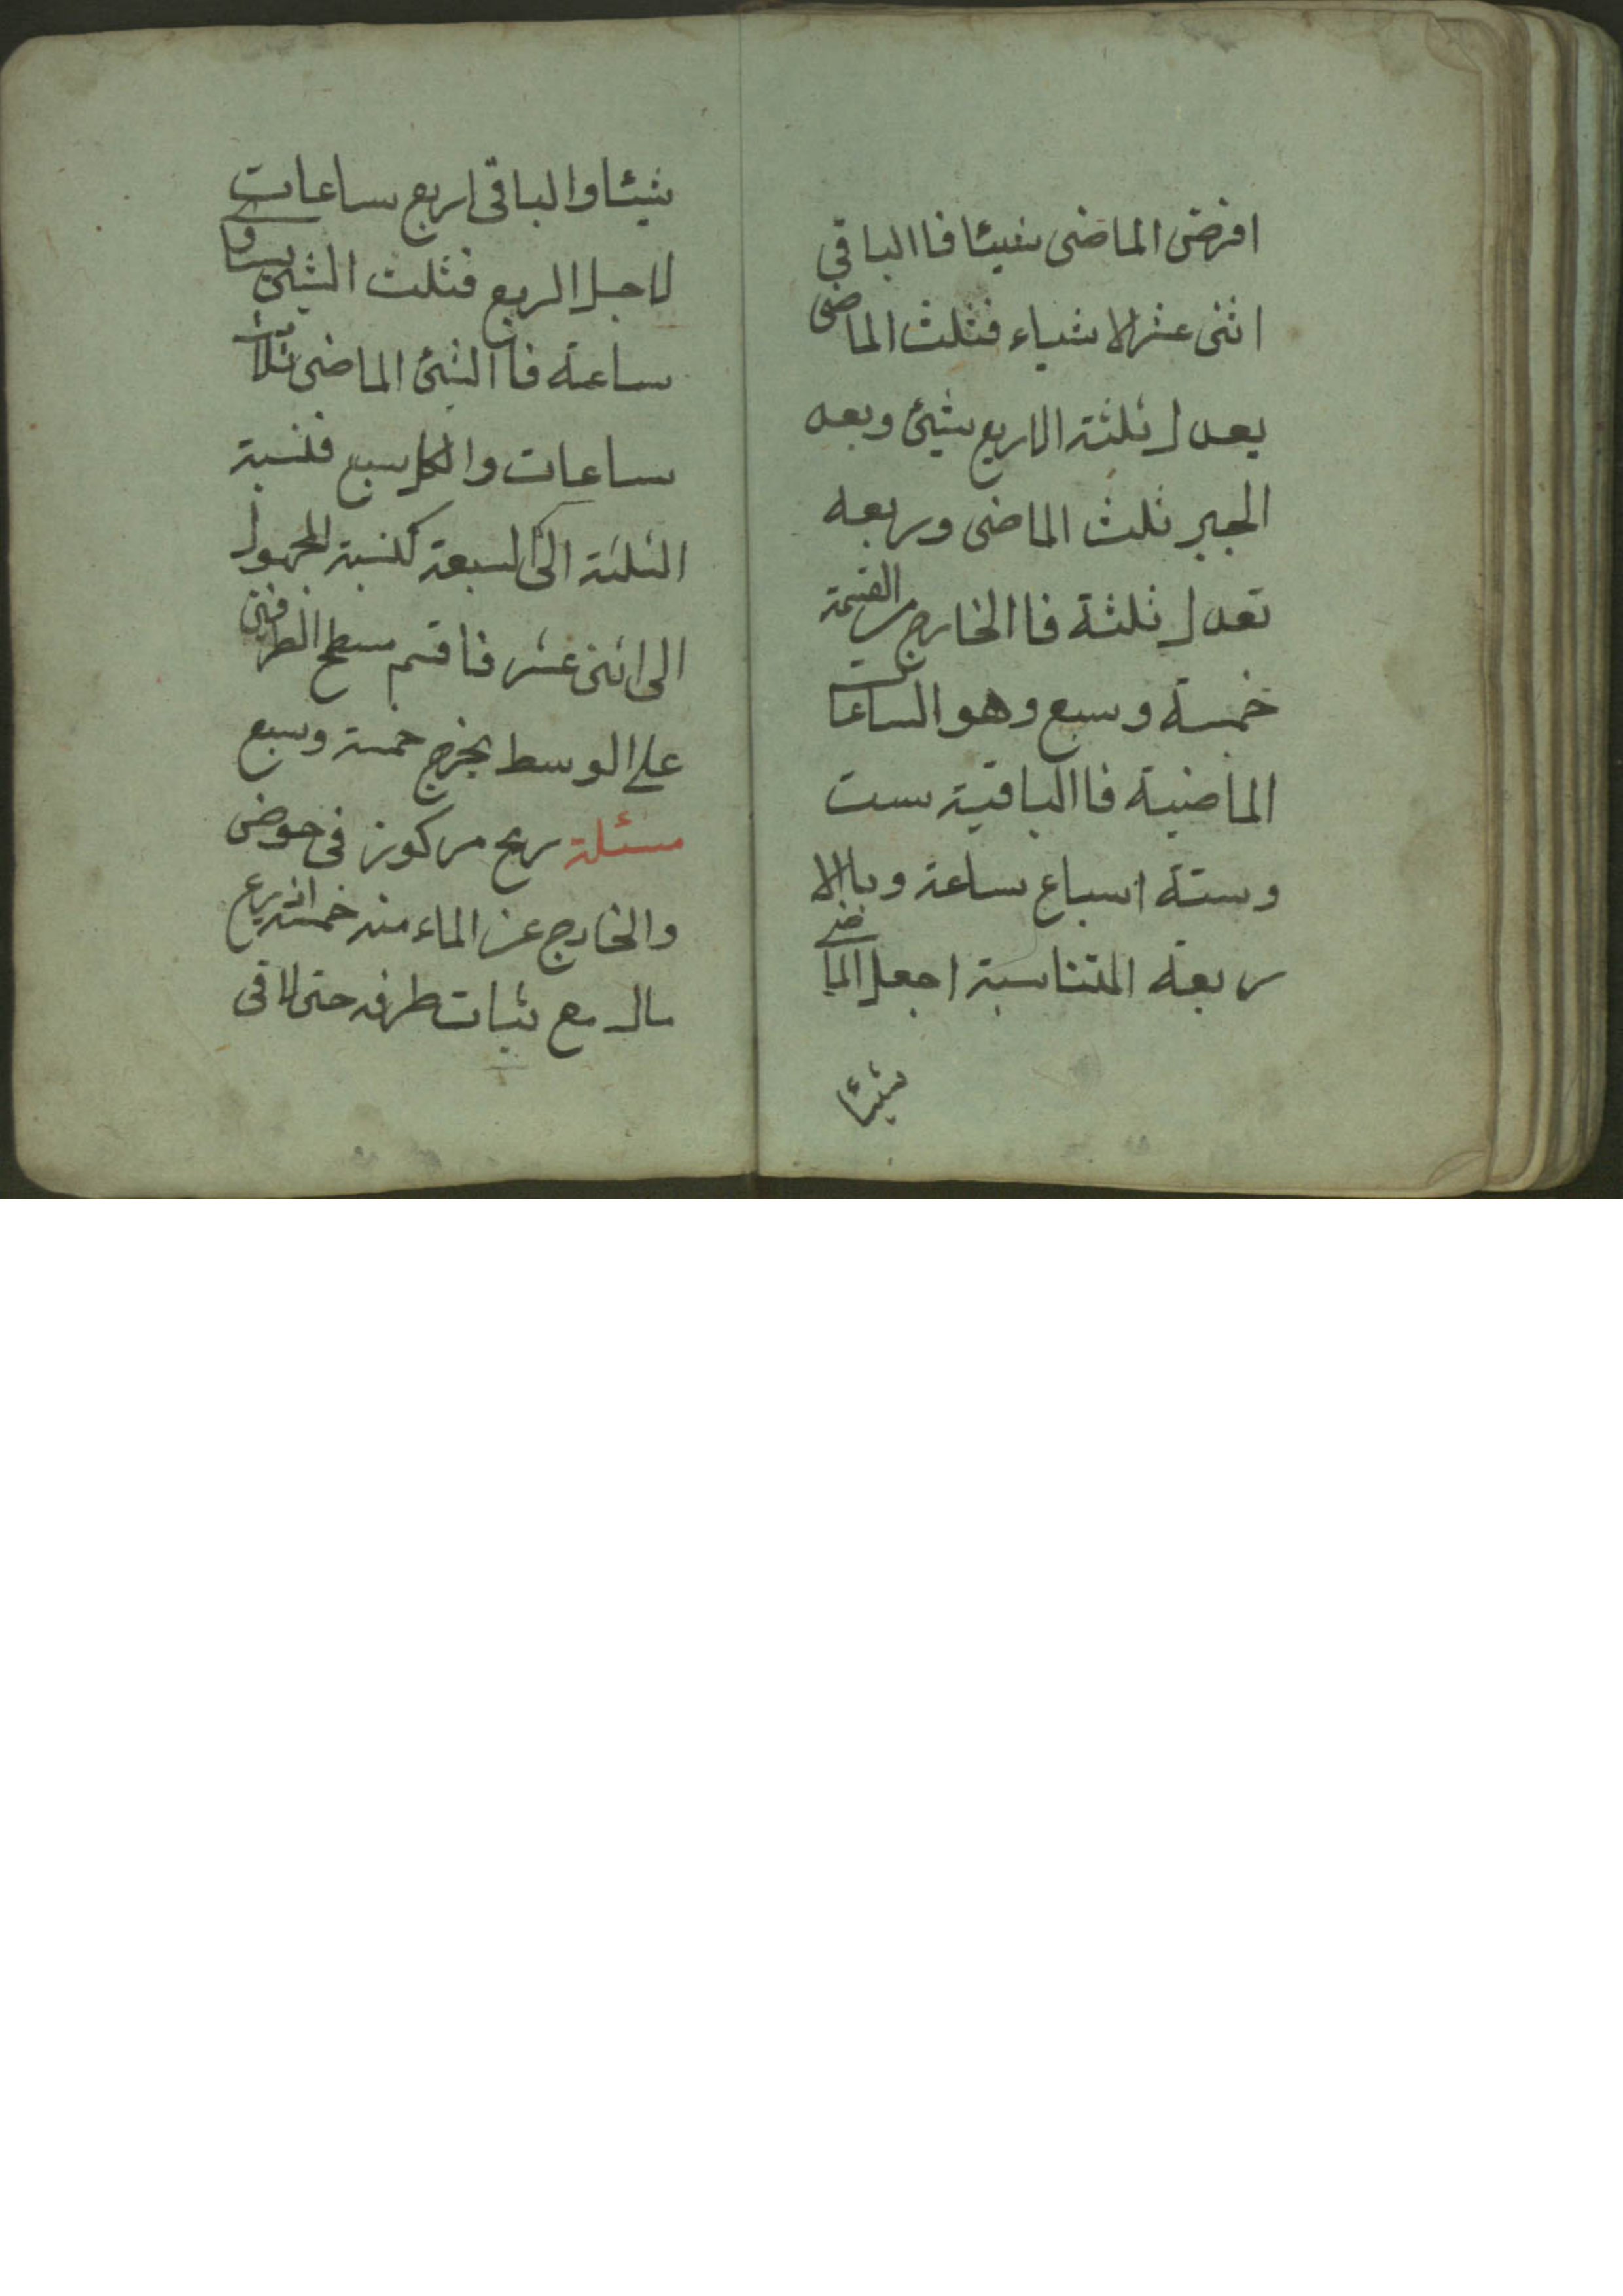 افرض الماضى شيئا فاالباقي
اثنى عشر الاشياء فثلث الماضى
يعدل ثلثة الاربع شيئ وبعد
الجبر ثلث الماضى وربعه
تعدل ثلثة فاالخارج من القسمة
خمسة وسبع وهو الساعات
الماضية فاالباقية ست
وستة اسباع ساعة وباالا
ربعة المتناسبة اجعل الماضى
شيئا
شيئا والباقى اربع ساعات
لاجل الربع فثلث الشيئ يساوى
ساعة فاالشئ الماضى ثلاث
ساعات والكل سبع فنسبة
الثلثة الى السبعة كنسبة المجهول
الى اثنى عشر فاقسم مسطح الطرفين
على الوسط يخرج خمسة وسبع
مسئلة رمح مركوز فى حوض
والخارج عن الماء منه خمسة اذرع
مال مع ثبات طرفه حتى لاقى